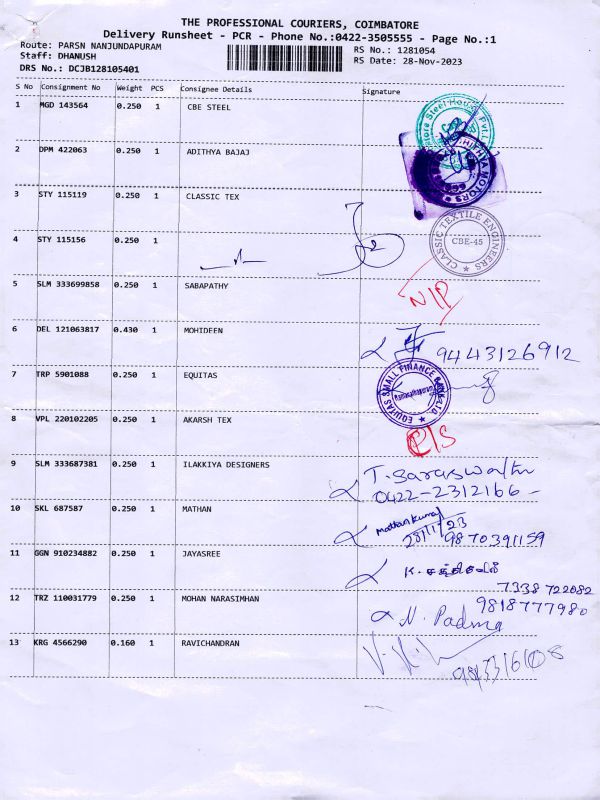 THE PROFESSIONAL COURIERS, COIMBATORE
Delivery Runsheet - PCR - Phone No.:0422-3505555 - Page No.:1
Route: PARSN NANJUNDAPURAM
Staff: DHANUSH
DRS No.: DCJB128105401
RS No.: 1281054
RS Date: 28-Nov-2023
S No Consignment No Weight PCS Consignee Details Signature
1 MGD 143564 0.250 1 CBE STEEL
2 DPM 422063 0.250 1 ADITHYA BAJAJ
3 STY 115119 0.250 1 CLASSIC TEX
CLASSIC TEXTILE ENGINEERS
CBE-45
4 STY 115156 0.250 1
5 SLM 333699858 0.250 1 SABAPATHY
N/P
6 DEL 121063817 0.430 1 MOHIDEEN
9443126912
7 TRP 5901088 0.250 1 EQUITAS
EQUITAS SMALL FINANCE BANK LTD.
Ramanathapuram
8 VPL 220102205 0.250 1 AKARSH TEX
C/S
9 SLM 333687381 0.250 1 ILAKKIYA DESIGNERS
T. Saraswathi
0422-2312166
10 SKL 687587 0.250 1 MATHAN
Mathankumar
28/11/23
9870391159
11 GGN 910234882 0.250 1 JAYASREE
K.
7338722082
12 TRZ 110031779 0.250 1 MOHAN NARASIMHAN
9818777980
N. Padma
13 KRG 4566290 0.160 1 RAVICHANDRAN